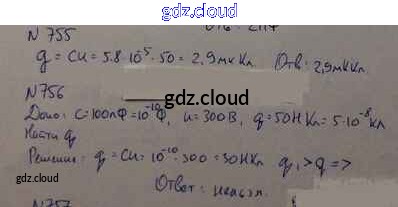 gdz.cloud
N 755
q = cu = 5.8·10⁻⁵·50 = 2,9мкКл Отв: 2,9мкКл
N756
gdz.cloud
Дано: C=100пФ=10⁻¹⁰Ф, u=300В, q=50НКл=5·10⁻⁸Кл
Найти q₁
Решение: q₁=cu=10⁻¹⁰·300=30НКл q₁>q =>
gdz.cloud
gdz.cloud
Ответ: нельзя.
N757